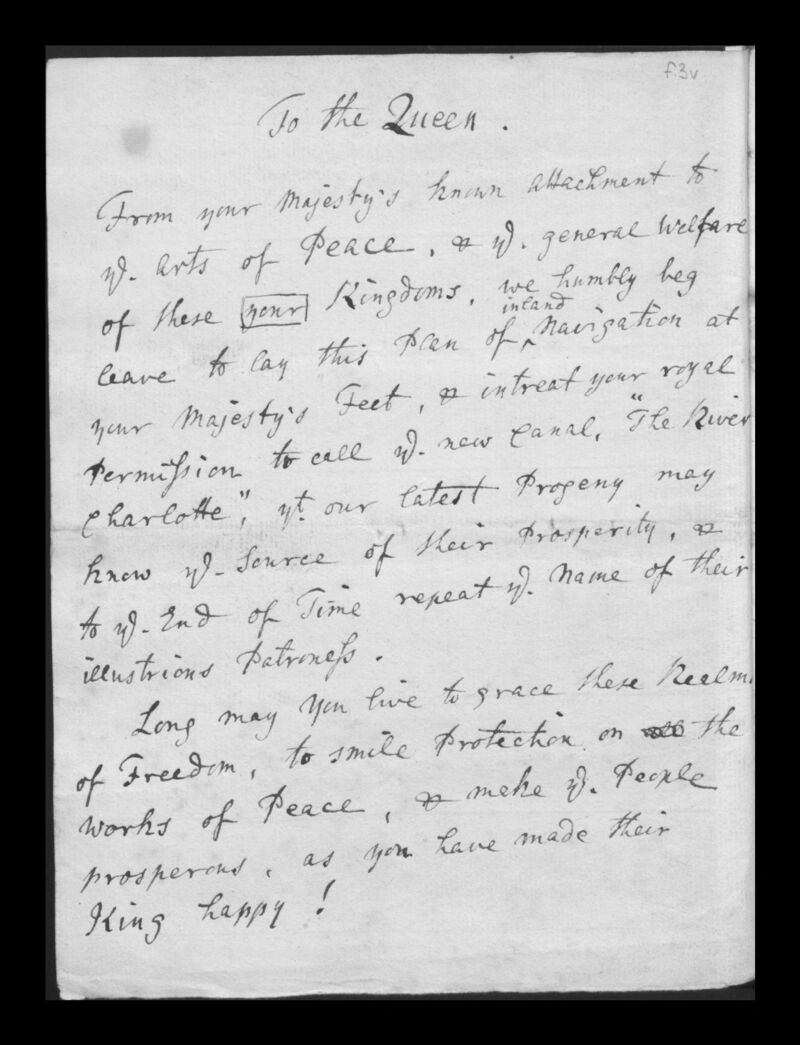 f.3v
To the Queen.
From your Majesty's known attachment to
yᵉ. arts of Peace, & yᵉ. general Welfare
of these your Kingdoms, we humbly beg
inland
leave to lay this Plan of ‸ Navigation at
your Majesty's Feet, & intreat your royal
Permiſsion to call yᵉ. new Canal, "The River
Charlotte", yᵗ. our latest Progeny may
know yᵉ. Source of their Prosperity, &
to yᵉ. End of Time repeat yᵉ. Name of their
illustrious Patroneſs.
Long may You live to grace these Realms
of Freedom, to smile Protection on the
works of Peace, & make yᵉ. People
prosperous, as you have made their
King happy!